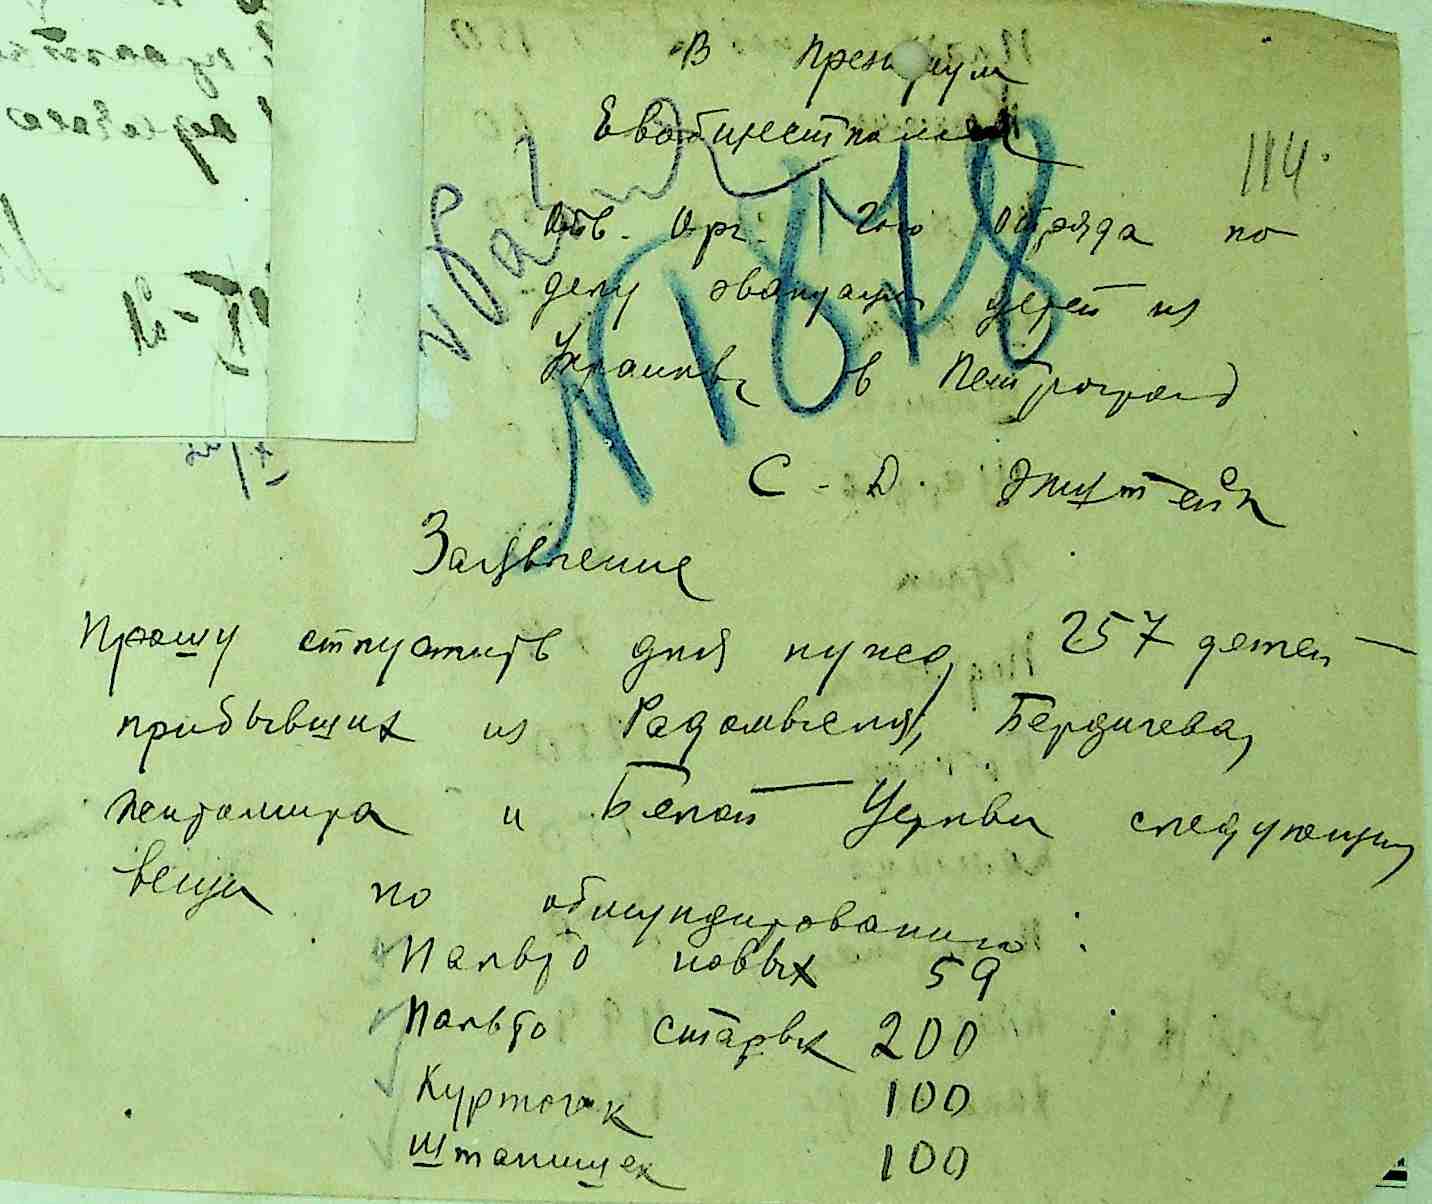 В Президиум
Евобщесткома
114.
Отв. Орг. 2го Отряда по
делу эвакуации детей из
Украины в Петроград
С. Д. Эпштейн
№ 1878
Заявление
Прошу отпустить для нужд 257 детей
прибывших из Радомысля, Бердичева,
Житомира и Белой Церкви следующие
вещи по обмундированию:
Пальто новых 59
Пальто старых 200
Курточек 100
Штанишек 100